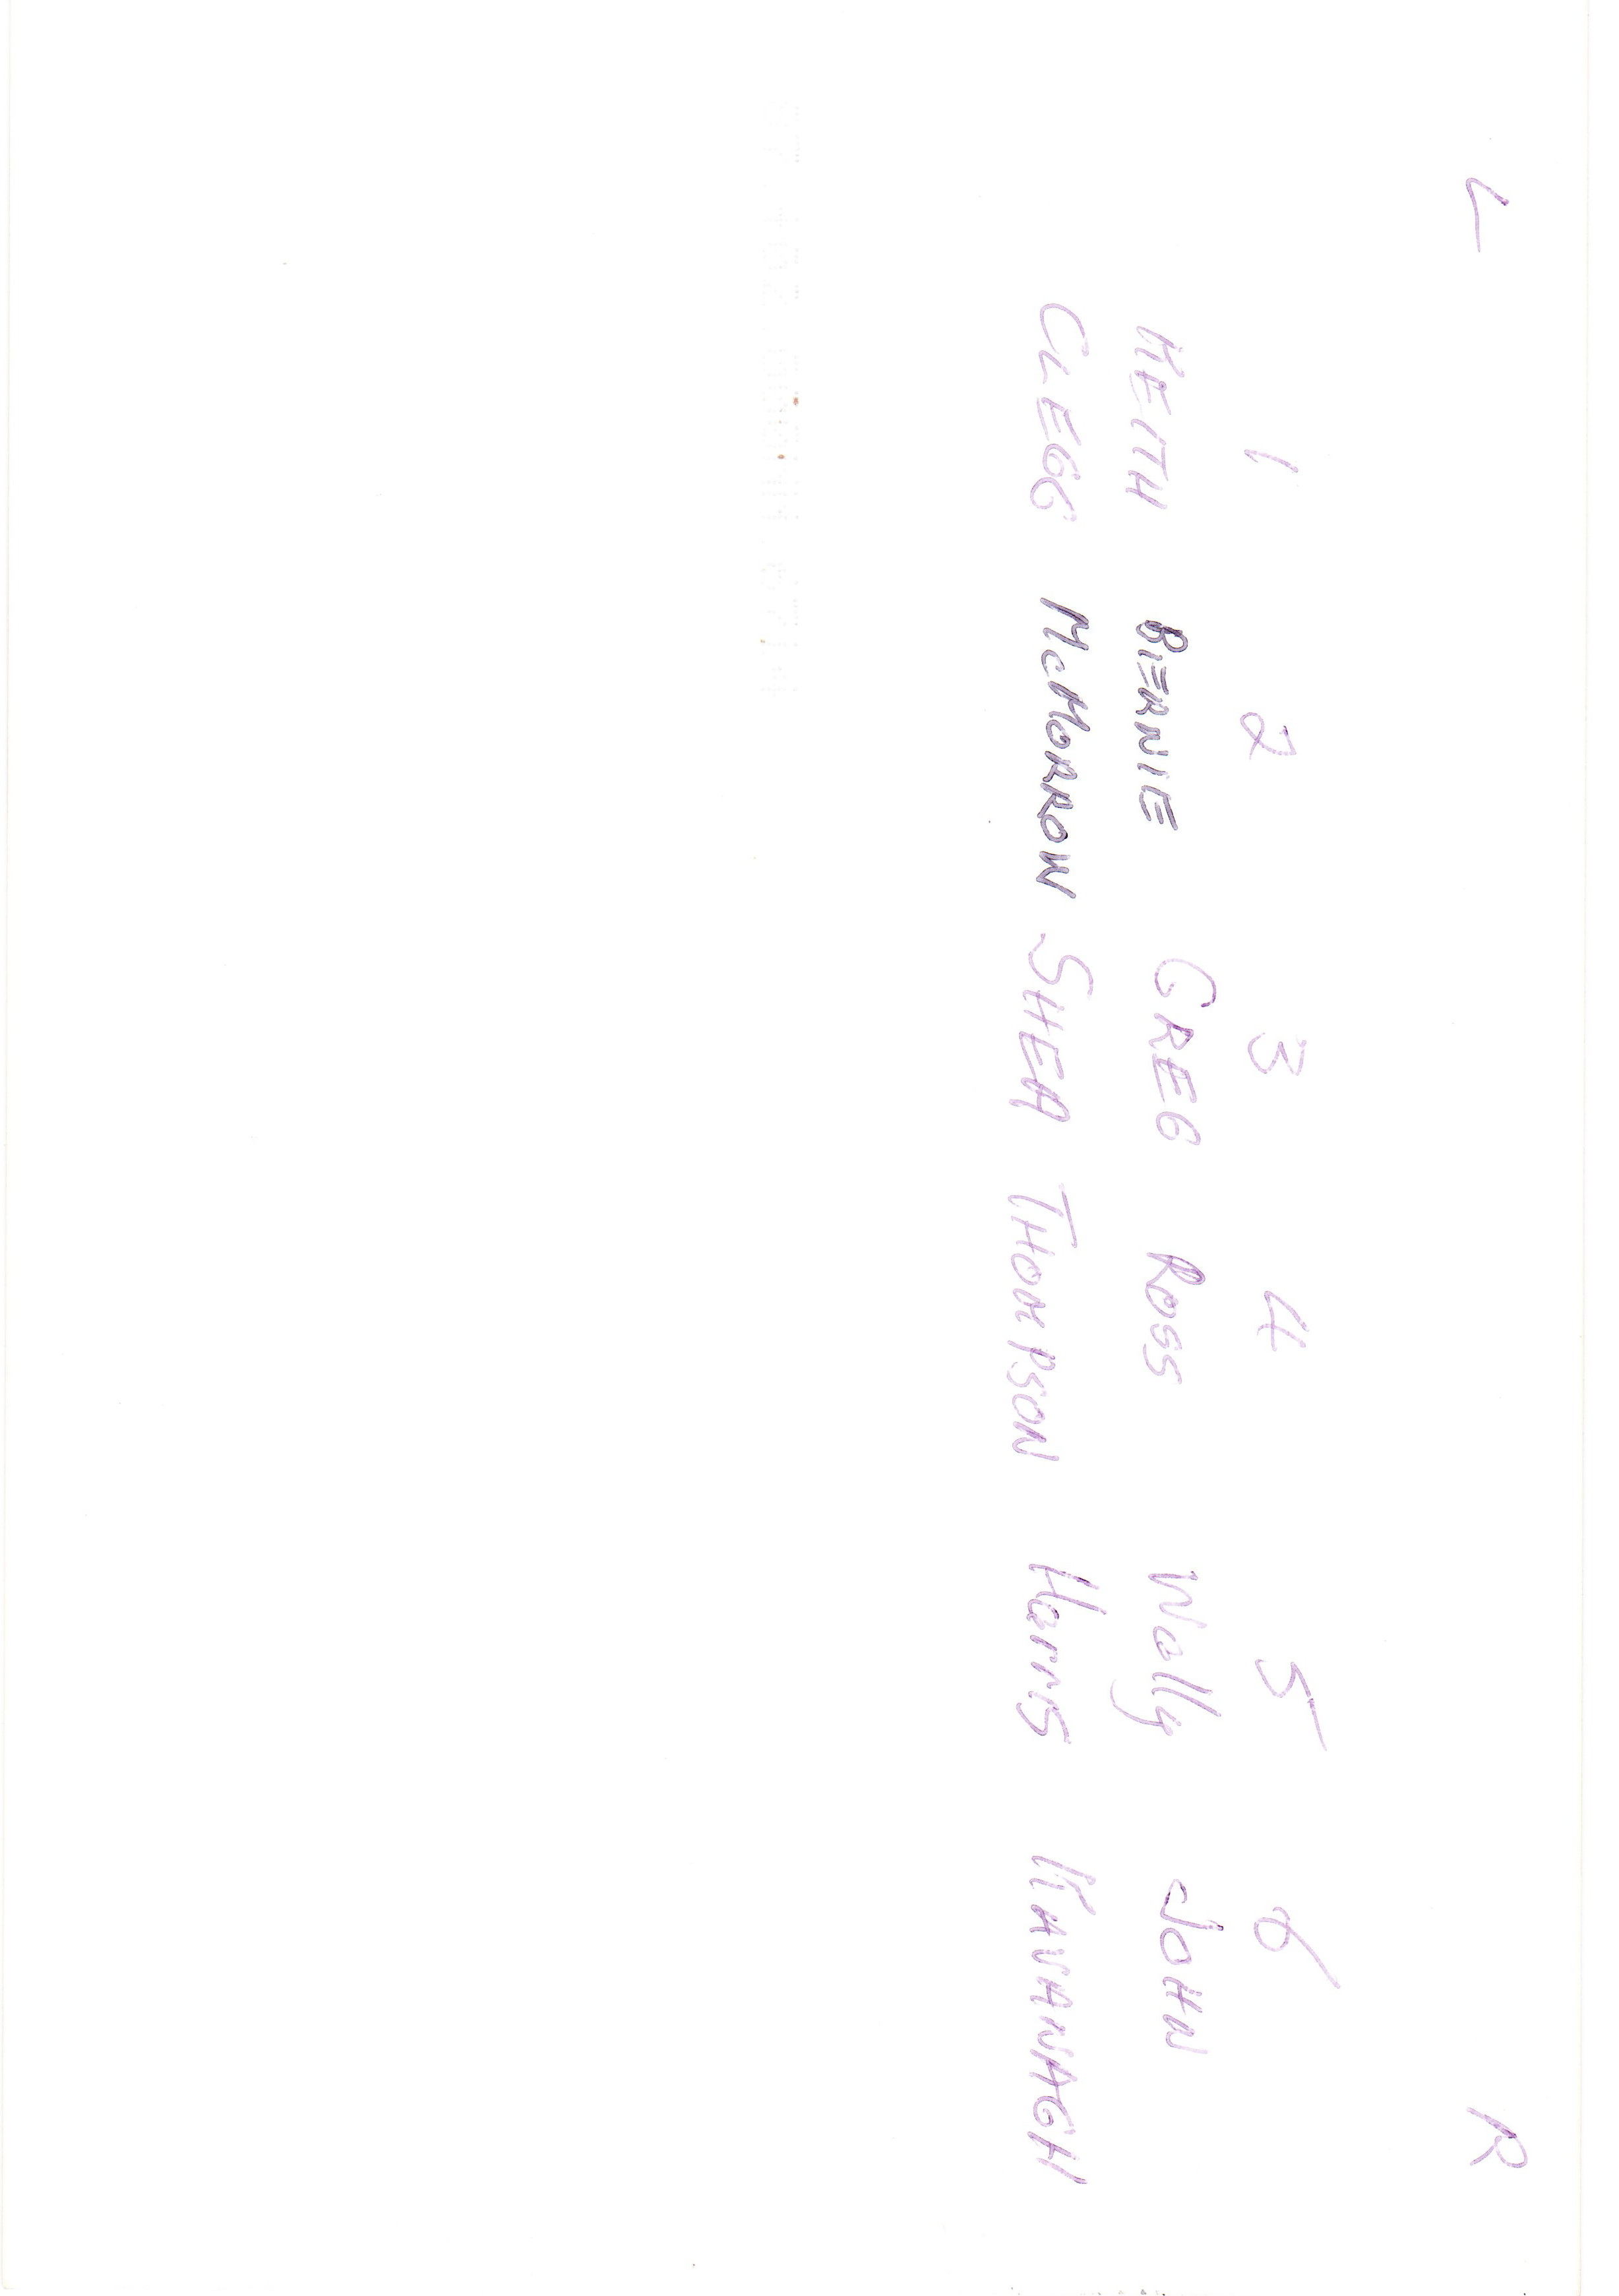 L R
1 2 3 4 5 6
KEITH BERNIE GREG ROSS Wally JOHN
CLEGG McMORROW SHEA THOMPSON Harris KAVANAGH